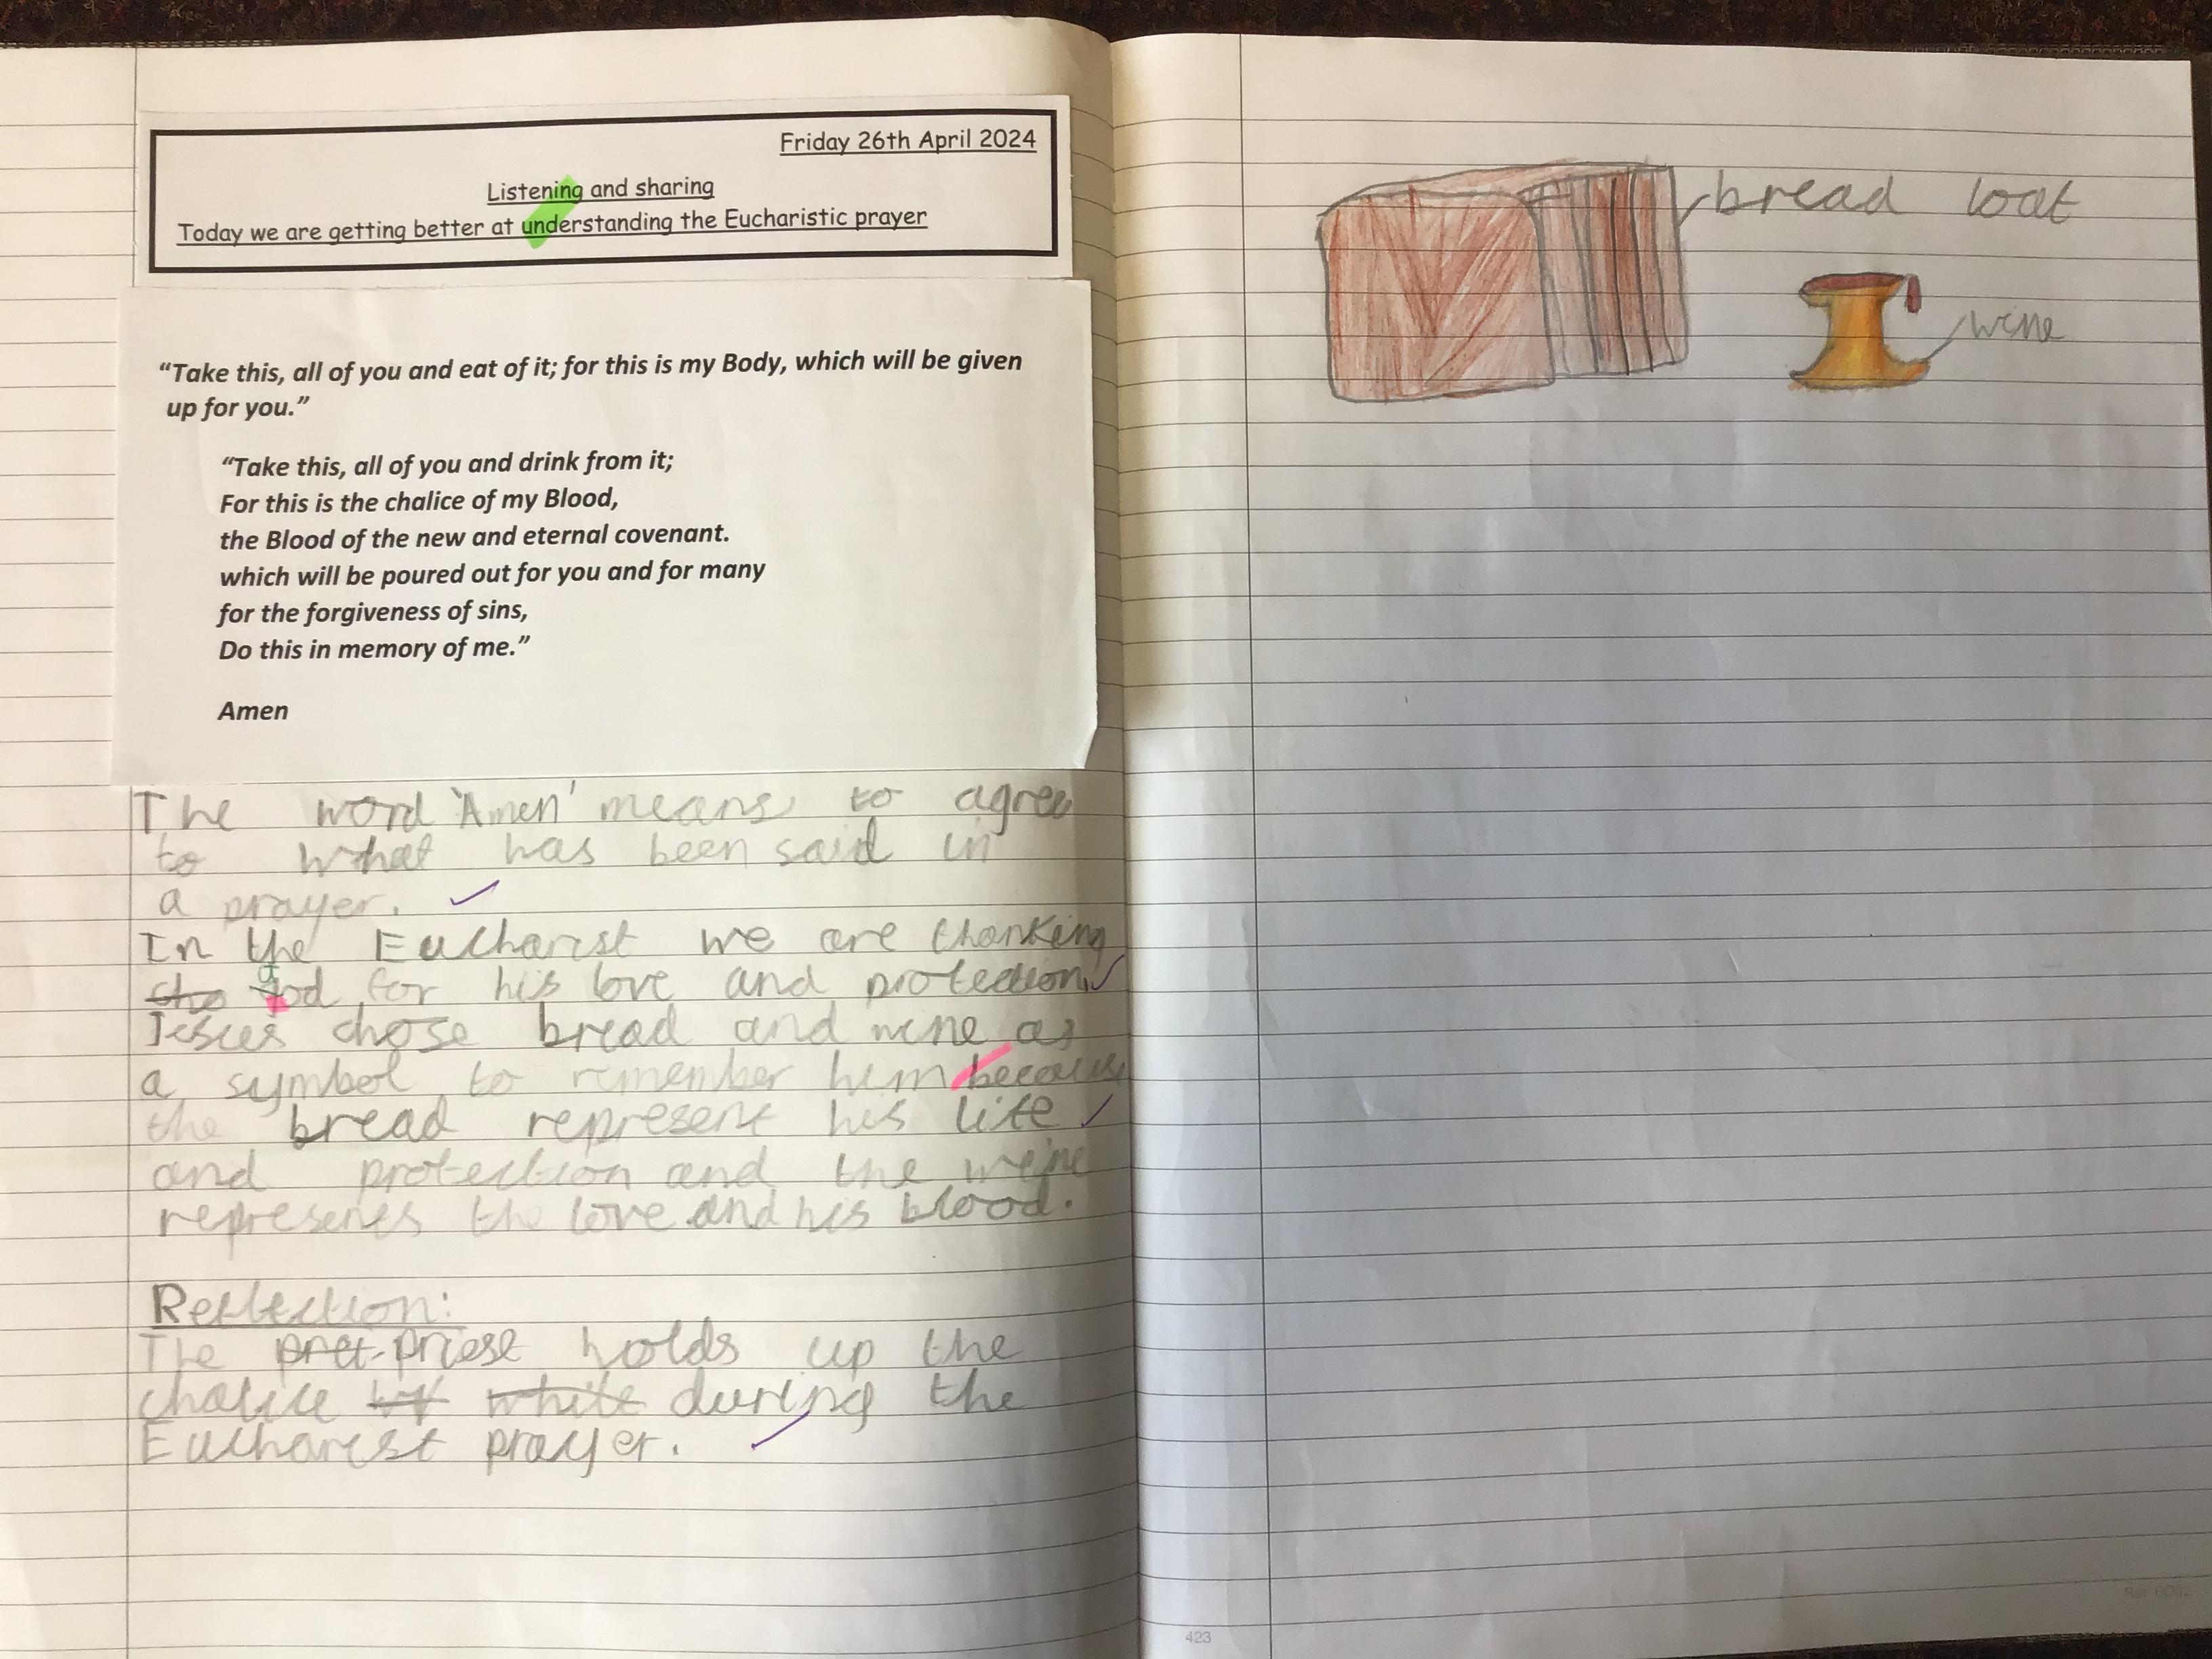 Friday 26th April 2024
Listening and sharing
Today we are getting better at understanding the Eucharistic prayer
“Take this, all of you and eat of it; for this is my Body, which will be given
up for you.”
“Take this, all of you and drink from it;
For this is the chalice of my Blood,
the Blood of the new and eternal covenant.
which will be poured out for you and for many
for the forgiveness of sins,
Do this in memory of me.”
Amen
The word 'Amen' means to agree
to what has been said in
a prayer.
In the Eucharist we are thanking
the God for his love and protection.
Jesus chose bread and wine as
a symbol to remember him because
the bread represent his life
and protection and the wine
represents the love and his blood.
Reflection:
The priest holds up the
chalice white during the
Eucharist prayer.
bread loaf
wine
423